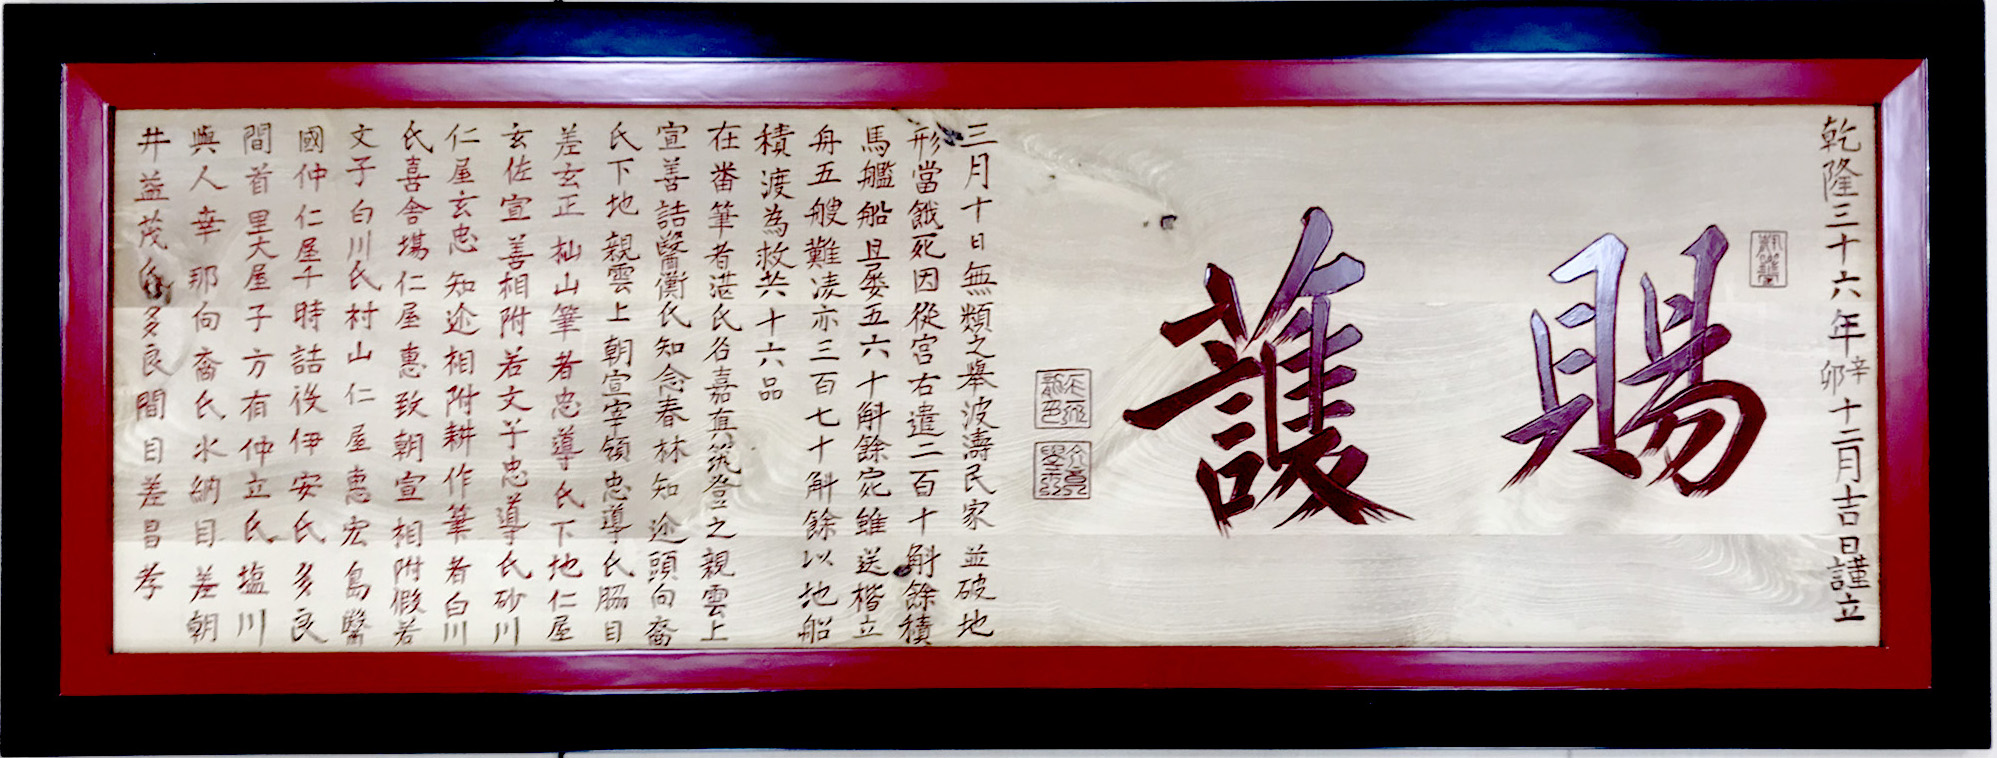 乾隆三十六年辛卯十二月吉日謹立
賜護
三月十日無類之舉波濤民家並破地
形當餓死因從宮右遣二百十斛餘積
馬艦船且屡五六十斛餘宛雖送楷立
舟五艘難凌亦三百七十斛餘以地船
積渡為救共十六品
在番筆者湛氏名嘉真筑登之親雲上
宣善詰醫衡氏知念春林知途頭向裔
氏下地親雲上朝宣宰領忠導氏脇目
差玄正杣山筆者忠導氏下地仁屋
玄佐宣善相附若文子忠導氏砂川
仁屋玄忠知途相附耕作筆者白川
氏喜舍場仁屋惠致朝宣相附假若
文子白川氏村山仁屋惠宏島醫
國仲仁屋千時詰役伊安氏多良
間首里大屋子方有仲立氏塩川
與人幸那向裔氏水納目差朝
井益茂氏多良間目差昌孝